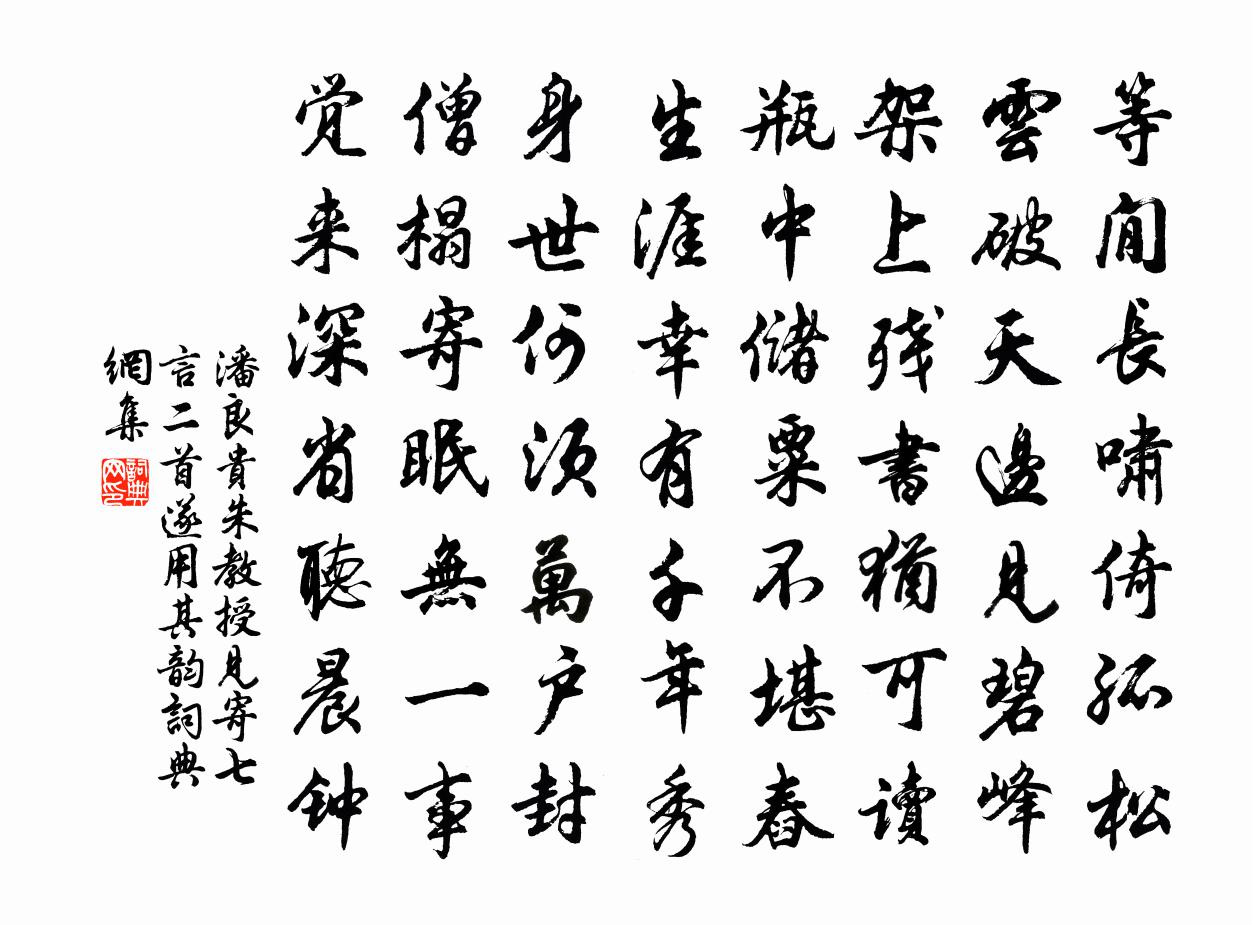 等閒長嘯倚孤松
雲破天邊見碧峰
架上残書猶可讀
瓶中儲粟不堪舂
生涯幸有千年秀
身世何須萬户封
僧榻寄眠無一事
觉来深省聽晨钟
潘良貴朱教授見寄七
言二首遂用其韵詞典
網集
詞典网印